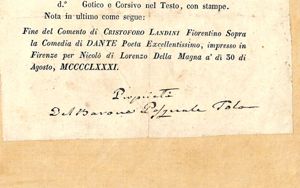 d.º Gotico e Corsivo nel Testo, con stampe.
Nota in ultimo come segue:
Fine del Comento di CRISTOFORO LANDINI Fiorentino Sopra
la Comedia di DANTE Poeta Excellentissimo, impresso in
Firenze per Nicolò di Lorenzo Della Magna a' dì 30 di
Agosto, MCCCCLXXXI.
Proprietà
Del Barone Pasquale